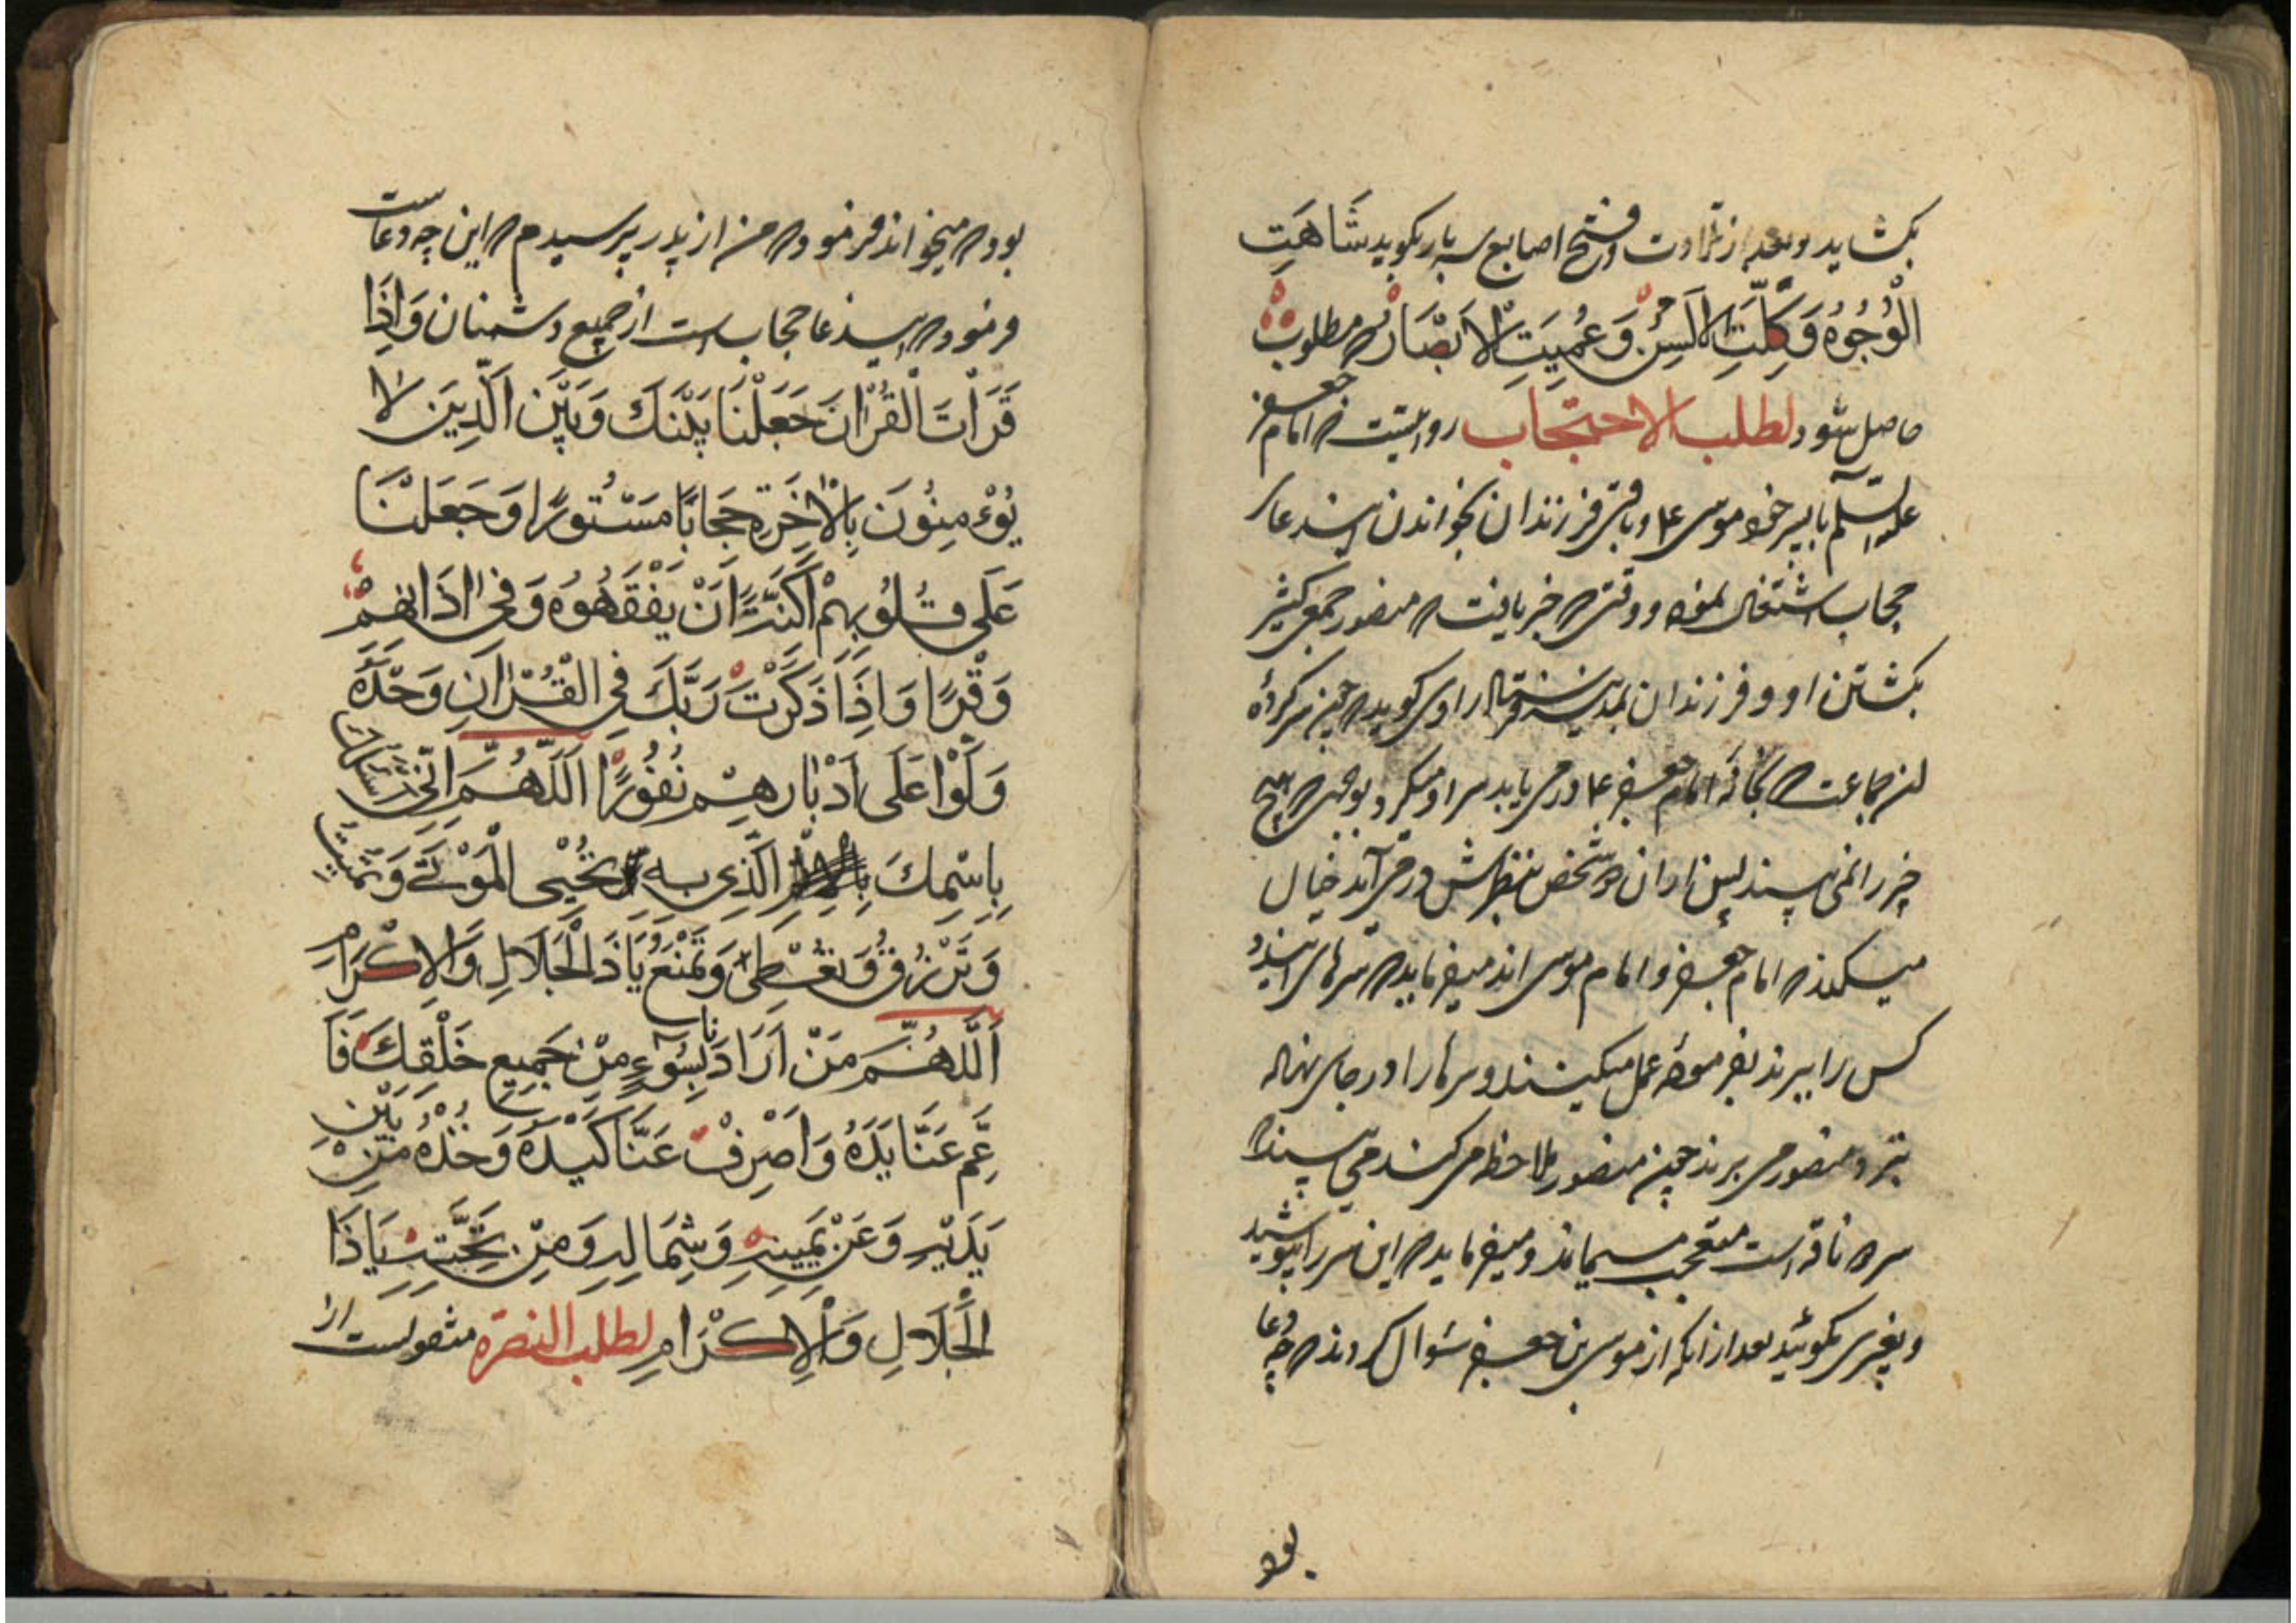 بکشاید و بعد از تلاوت و فتح اصابع سه بار بکوید شَاهَتِ
الْوُجُوهُ وَكَلَّتِ الْاَلْسُنُ وَعُمِيَتِ الْاَبْصَارُ که مطلوب
حاصل شود لطلب الاحتجاب روایتست که امام جعفر
علیه السلم با پسر خود موسی ع و باقی فرزندان بخواندن اینדعای
حجاب اشتغال نموده و وقتی که خبر یافت که منصور جمعی کثیر
بکشتن او و فرزندان بمدینه فرستاده راوی کوید که چون سرکرده
این جماعت که بخانه امام جعفر ع در می یابد سر او میکردد بوجهی که هیچ
چیز را نمی بیند پس از ان دو شخص بنظرش در می آید خیال
میکند که امام جعفر و امام موسی اند میفرماید که سرهای ایندو
کس را ببرند بفرموده عمل میکنند و سرها را در جای نهاده
نزد منصور می برند چون منصور ملاحظه می کند می بیند که
سر دو ناقه است متعجب میماند و میفرماید که این سر را بپوشید
و بغیری مکوئید بعد از آنکه از موسی بن جعفر سؤال کردند که چه دعا
بود
بود که میخواندند فرمود که من از پدر پرسیدم که این چه دعاست
فرمود که ایندعا حجاب است از جمیع دشمنان وَاِذَا
قَرَاْتَ الْقُرْانَ جَعَلْنَا بَيْنَكَ وَبَيْنَ الَّذِينَ لَا
يُؤْمِنُونَ بِالْاخِرَةِ حِجَابًا مَسْتُورًا وَجَعَلْنَا
عَلَى قُلُوبِهِمْ اَكِنَّةً اَنْ يَفْقَهُوهُ وَفِى اذَانِهِمْ
وَقْرًا وَاِذَا ذَكَرْتَ رَبَّكَ فِي الْقُرْانِ وَحْدَهُ
وَلَّوْا عَلَى اَدْبَارِهِمْ نُفُورًا اَللَّهُمَّ اِنِّى اَسْئَلُكَ
بِاسْمِكَ الَّذِى بِهِ تُحْيِى الْمَوْتَى وَتُمِيتُ
وَتَرْزُقُ وَتُعْطِى وَتَمْنَعُ يَا ذَا الْجَلَالِ وَالْاِكْرَامِ
اَللَّهُمَّ مَنْ اَرَادَنَا بِسُوۤءٍ مِنْ جَمِيعِ خَلْقِكَ فَاَ
عْمِ عَنَّا يَدَهُ وَاصْرِفْ عَنَّا كَيْدَهُ وَخُذْهُ مِنْ بَيْنِ
يَدَيْهِ وَعَنْ يَمِينِهِ وَشِمَالِهِ وَمِنْ تَحْتِهِ يَا ذَا
الْجَلَالِ وَالْاِكْرَامِ لطلب النصرة منقولست از